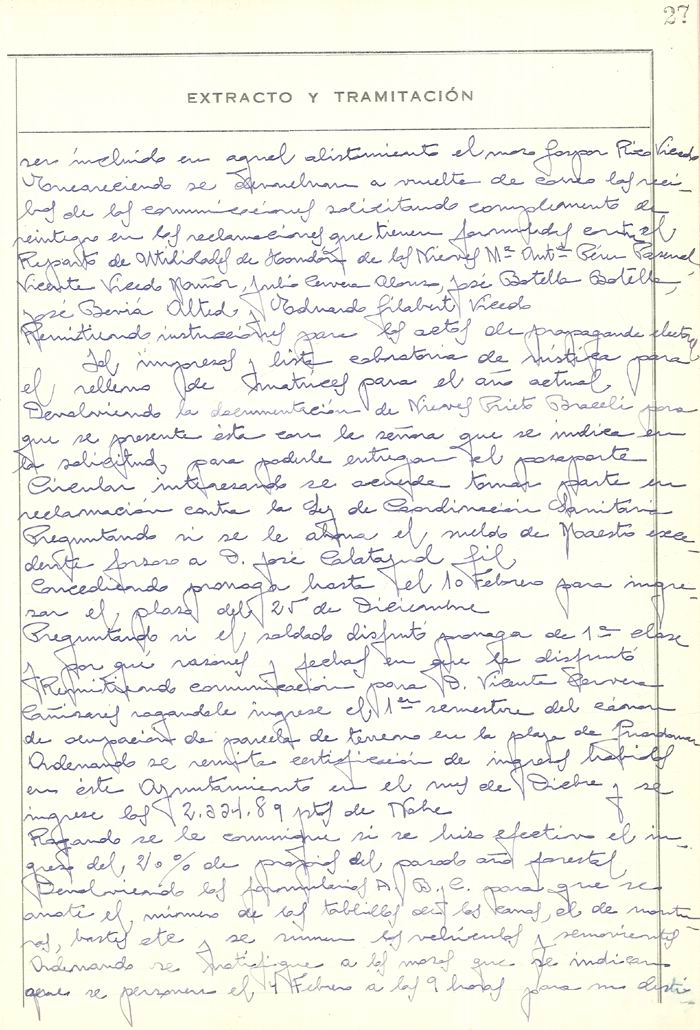 27
EXTRACTO Y TRAMITACIÓN
ser incluido en aquel alistamiento el mozo Gaspar Rico Vicedo
Encareciendo se devuelvan a vuelta de correo los reci-
bos de las comunicaciones solicitando complemento de
reintegro en las reclamaciones que tienen formuladas contra el
Reparto de Utilidades de Hondón de las Nieves Mª Antª Pérez Pascual,
Vicente Vicedo Mañor, Julio Cervera Alonso, José Botella Botella,
José Beviá Alted, Eduardo Gilabert Vicedo
Remitiendo instrucciones para los actos de propaganda electoral
Id impresos y lista cobratoria de rústica para
el relleno de matrices para el año actual
Devolviendo la documentación de Nieves Prieto Braceli para
que se presente ésta con la señora que se indica en
la solicitud para poderle entregar el pasaporte
Circular interesando se acuerde tomar parte en
reclamación contra la Ley de Coordinación Sanitaria
Preguntando si se le abona el sueldo de Maestro exce-
dente forzoso a D. José Calatayud Gil
Concediendo prorroga hasta el 10 Febrero para ingre-
sar el plazo del 25 de Diciembre
Preguntando si el soldado disfrutó prorroga de 1ª clase
y por que razones y fechas en que la disfrutó
Remitiendo comunicación para D. Vicente Cervera
Cañizares rogandole ingrese el 1er semestre del cánon
de ocupación de parcela de terreno en la plaza de
Ordenando se remita certificación de ingresos habidos
en éste Ayuntamiento en el mes de Dicbre y se
ingrese las 2.334.89 pts de Nbre
Rogando se le comunique si se hizo efectivo el in-
greso del 20% de propios del pasado año forestal
Devolviendo los formularios A, B, C. para que se
anote el número de las tablillas de los carros, el de
ras, bastes etc y se sumen los vehículos y semovientes
Ordenando se notifique a los mozos que se indican
se personen el 4 Febrero a las 9 horas para su desti-